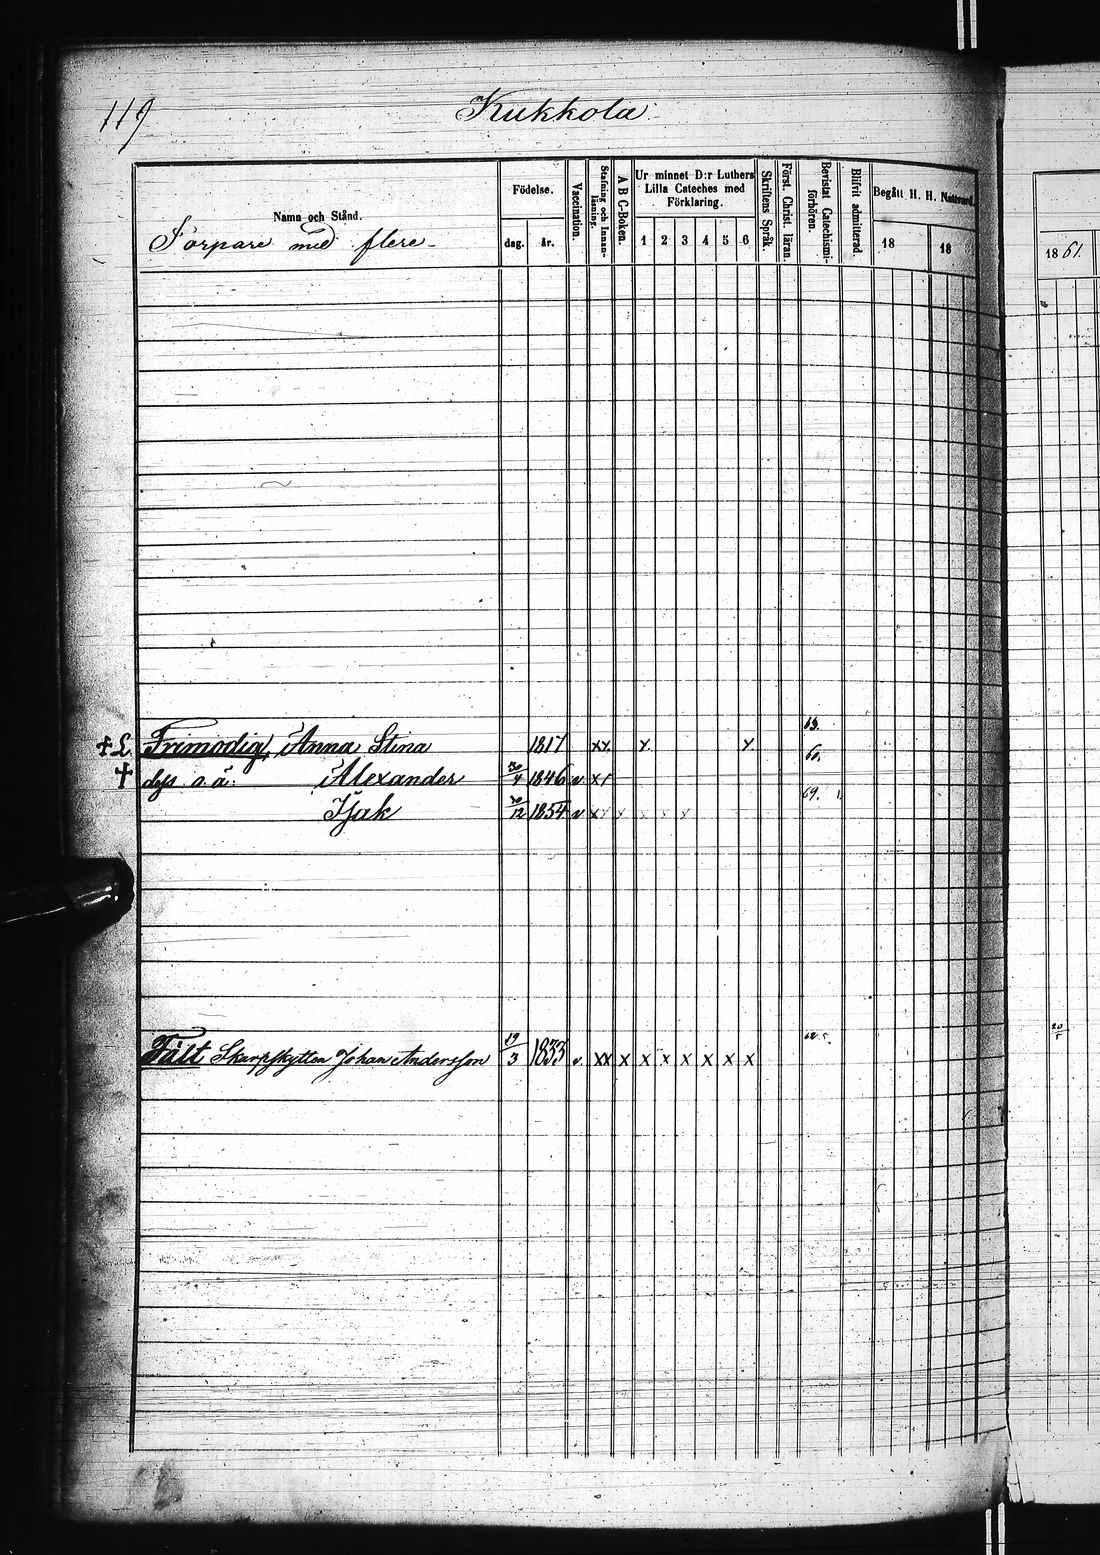 119
Kukkola
Namn och Stånd.
Torpare med flere
Födelse.
dag. år.
Vaccination.
Stafning och Innan-
läsning.
A B C-Boken.
Ur minnet D:r Luthers
Lilla Cateches med
Förklaring.
1 2 3 4 5 6
Skriftens Språk.
Först. Christ. läran.
Bevistat Catechismi-
förhören.
Blifvit admitterad.
Begått H. H. Nattvard.
18 18
1861.
63.
Frimodig, Anna Stina 1817 xx x x
60.
dess o.ä. Alexander 30/4 1846 v x
69. 1.
Isak 30/12 1854 v x x x x x x
62
Fält Skarpskytten Johan Andersson 19/3 1833 v. xx x x x x x x x
20/5